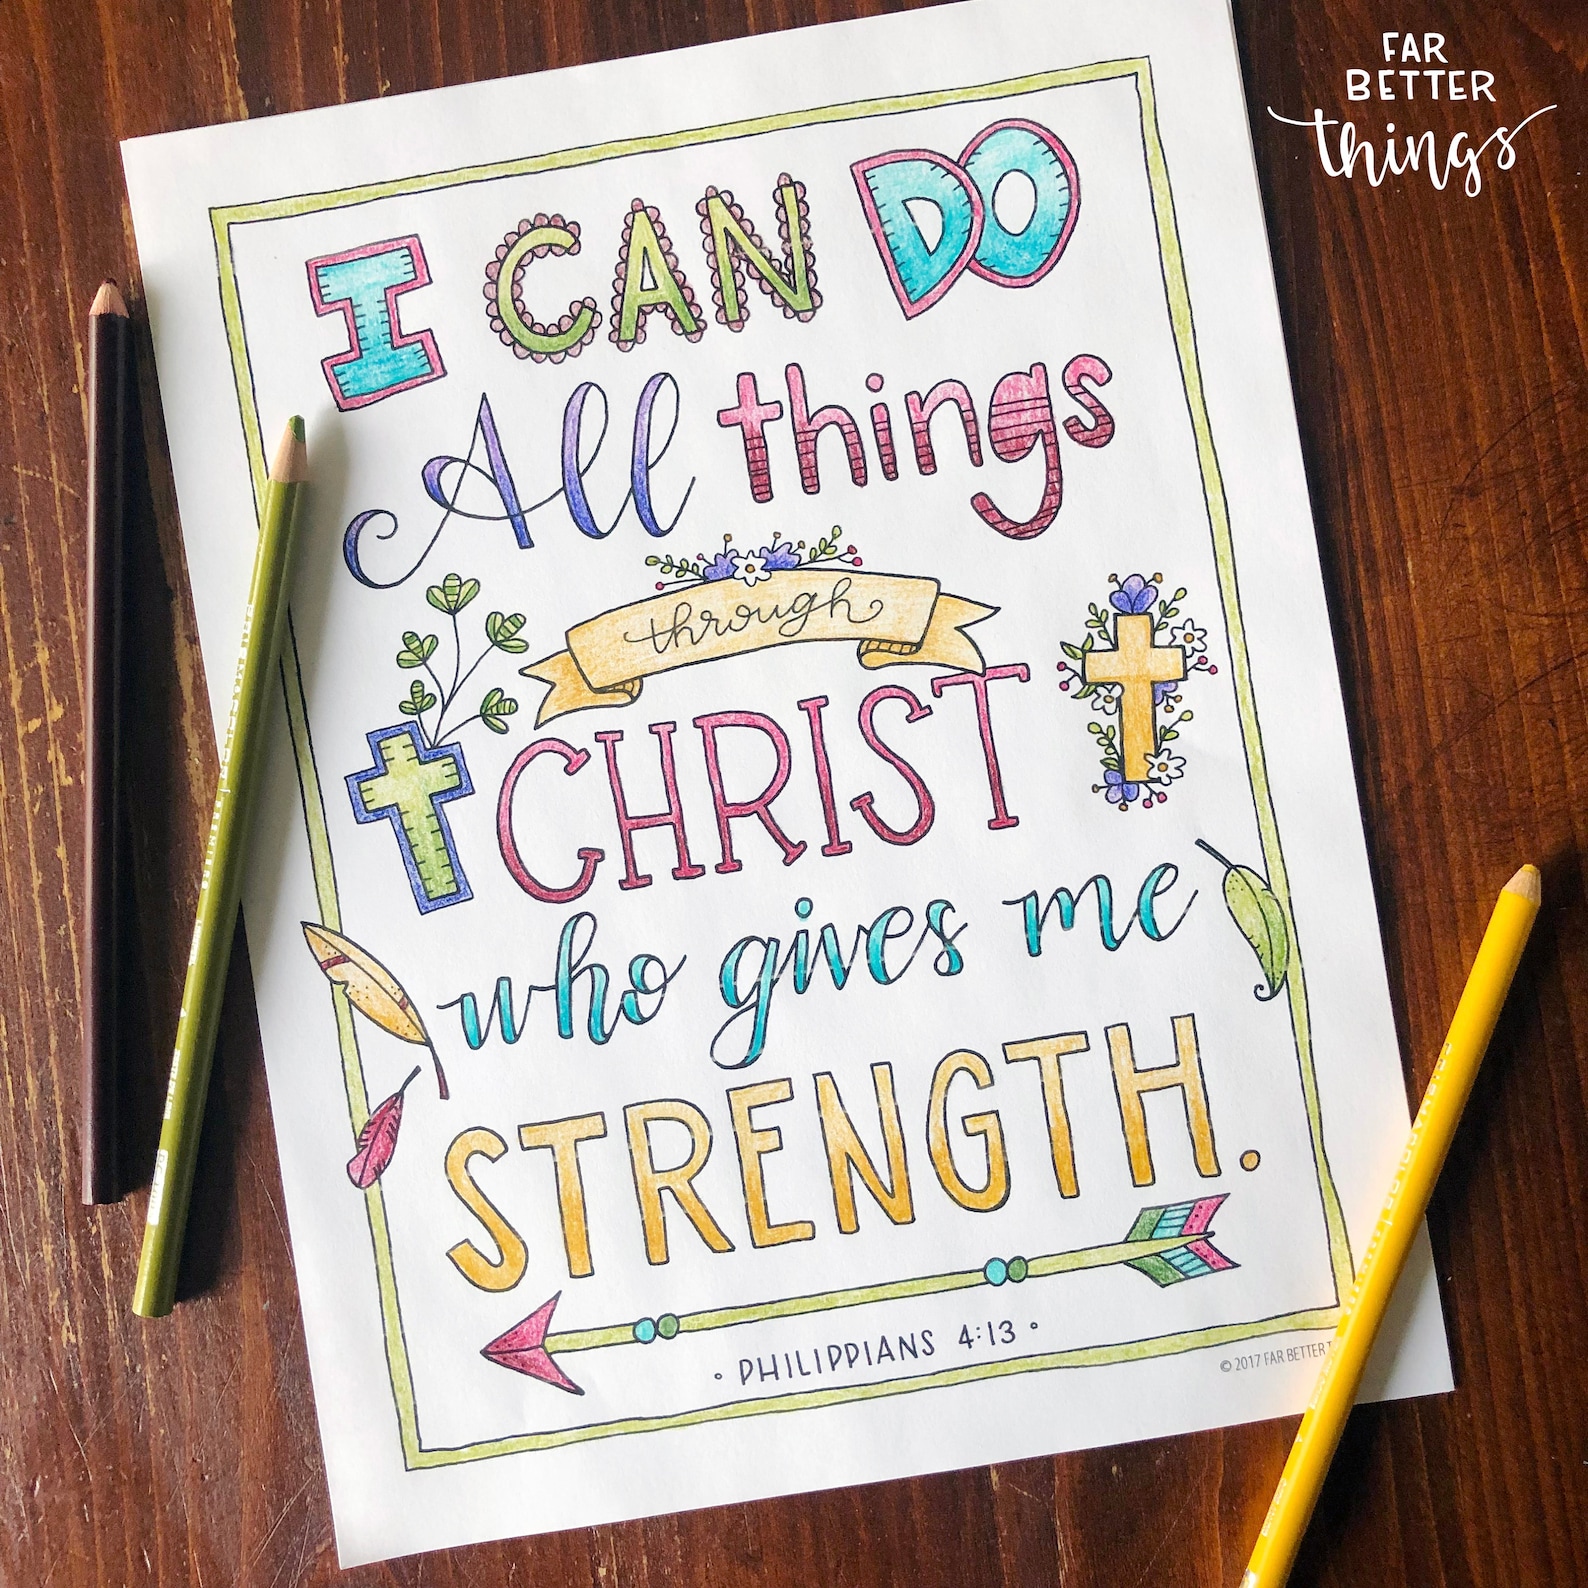 FAR
BETTER
things
I CAN DO
All things
through
CHRIST
who gives me
STRENGTH.
• PHILIPPIANS 4:13 •
© 2017 FAR BETTER